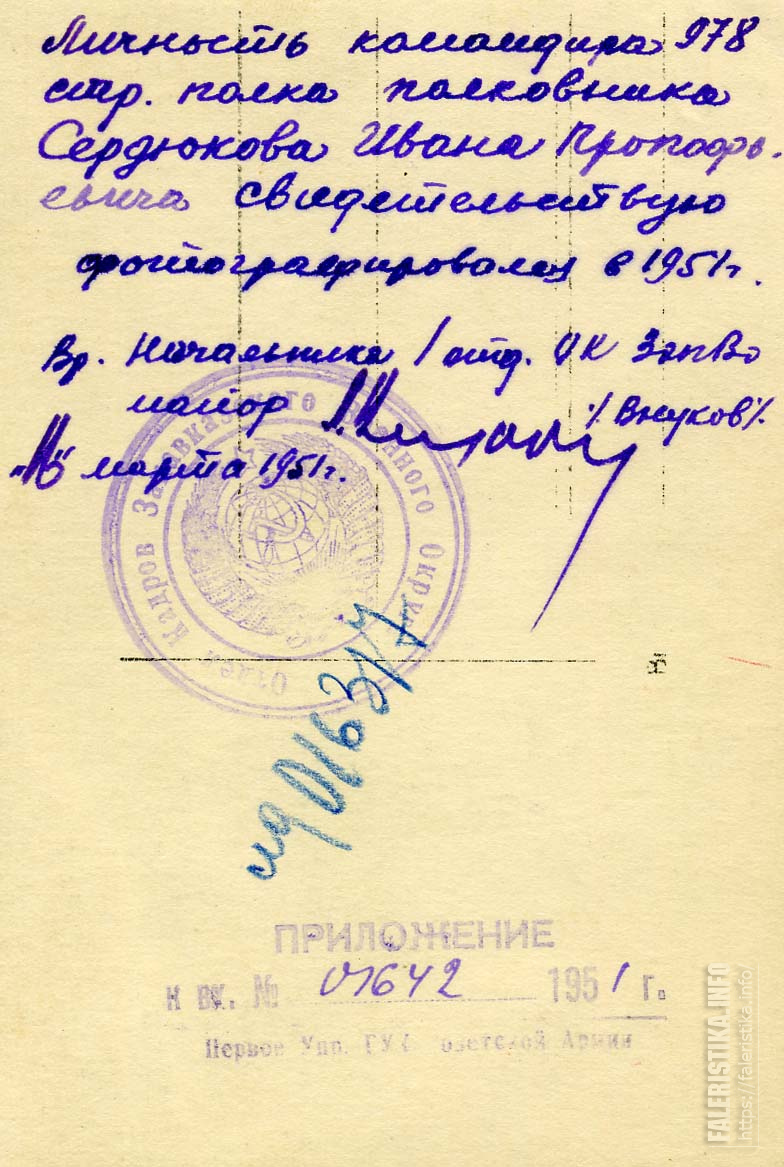 Личность командира 978
стр. полка полковника
Сердюкова Ивана Прокофь-
евича свидетельствую
фотографировался в 1951 г.
Вр. Начальника 1 отд. ОК ЗакВО
майор /Внуков/.
марта 1951 г.
Отдел Кадров Закавказского Военного Округа
ПРИЛОЖЕНИЕ
к вх. № 01642 1951 г.
Первое Упр. Советской Армии
FALERISTIKA.INFO
https://faleristika.info